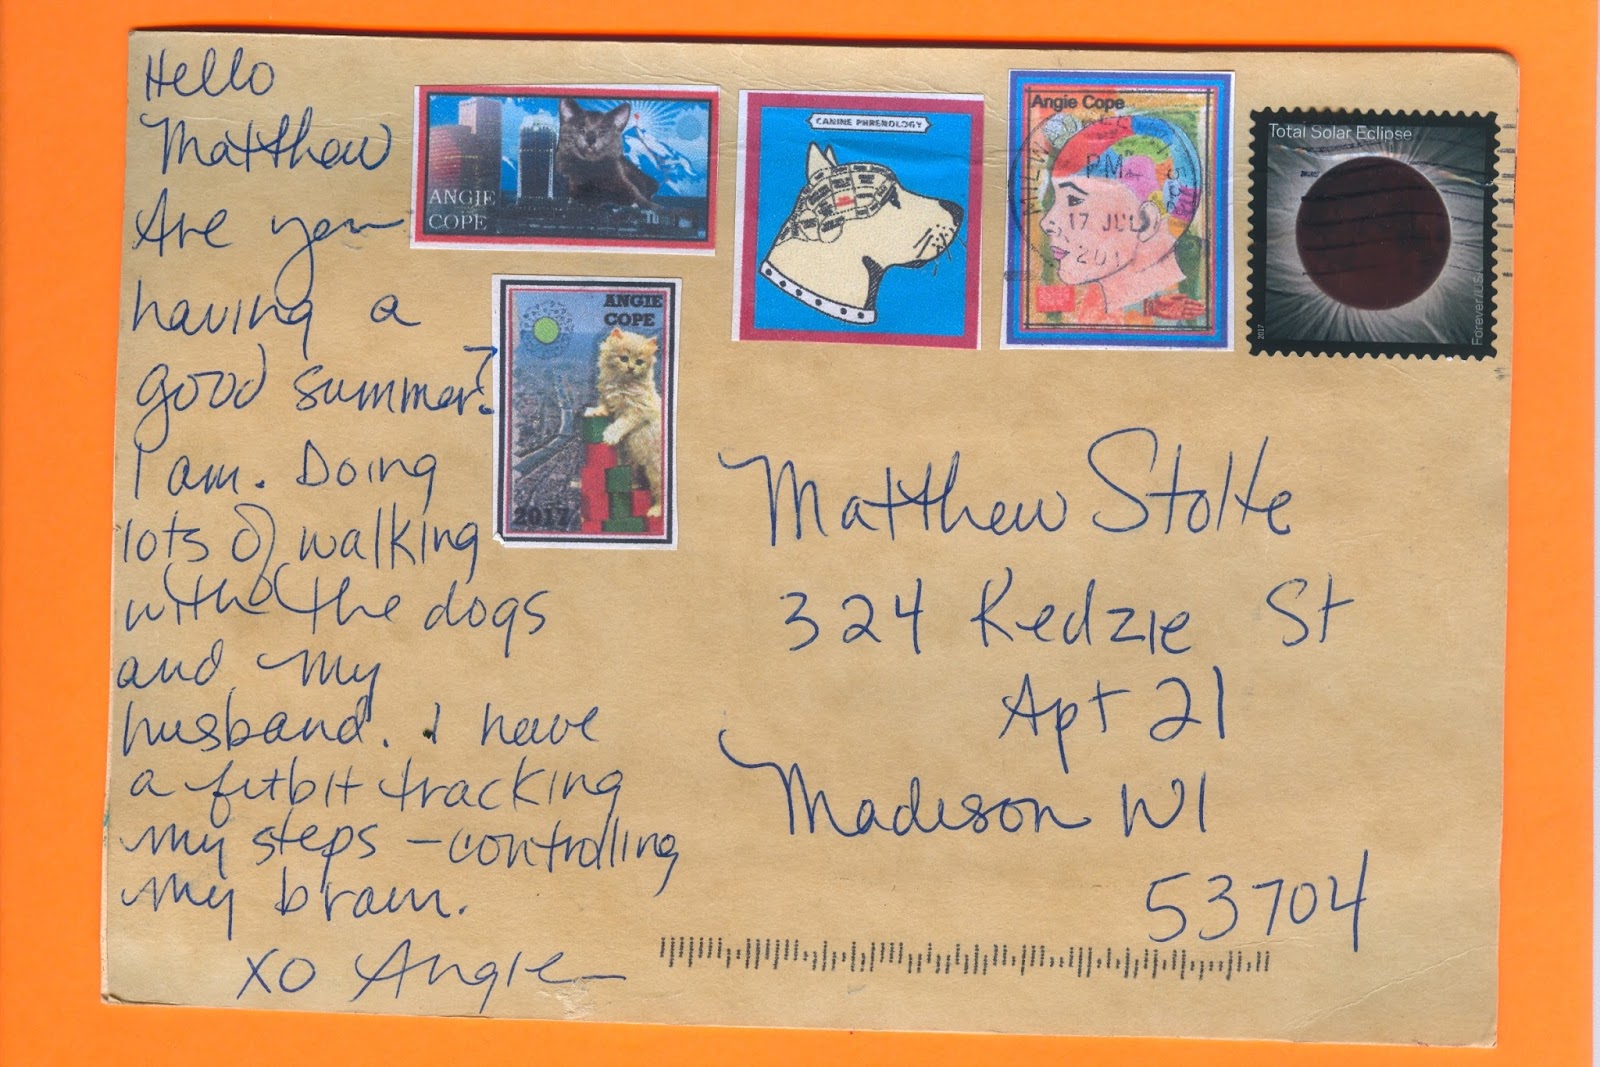 Hello
Matthew
Are you
having a
good summer?
I am. Doing
lots of walking
with the dogs
and my
husband. I have
a fitbit tracking
my steps - controlling
my brain.
XO Angie
ANGIE
COPE
CANINE PHRENOLOGY
Angie Cope
PM
17 JUL
Total Solar Eclipse
Forever/USA
2017
ANGIE
COPE
2017
Matthew Stolte
324 Kedzie St
Apt 21
Madison WI
53704